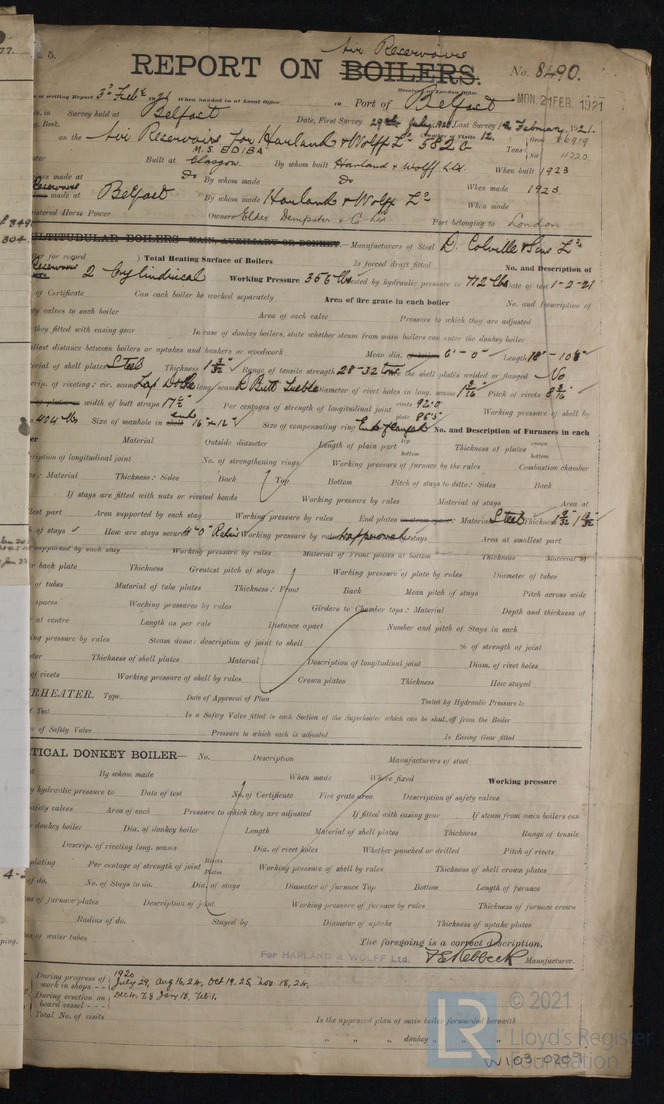 77.
5.
Air Reservoirs
REPORT ON BOILERS.
No. 8490.
Received at London Office
MON. 21 FEB. 1921
of writing Report 3rd Feby 1921 When handed in at Local Office 19 Port of Belfast
in Survey held at Belfast Date, First Survey 29th July 1920 Last Survey 12 February 1921.
Book. Number of Visits 12
on the Air Reservoirs for Harland & Wolff Ld 582 G Tons Gross 6919 Net 4220
M.S. "
Built at Glasgow By whom built Harland & Wolff Ltd. When built 1923
made at Do By whom made Do When made 1923
Reservoirs made at Belfast By whom made Harland & Wolff Ld When made
Registered Horse Power Owners Elder Dempster & Co Ltd Port belonging to London
MULTITUBULAR BOILERS—MAIN, AUXILIARY OR DONKEY.—Manufacturers of Steel D. Colville & Sons Ld
for record ) Total Heating Surface of Boilers Is forced draft fitted No. and Description of
Reservoirs 2 Cylindrical Working Pressure 356 lbs Tested by hydraulic pressure to 712 lbs Date of test 1-2-21
of Certificate Can each boiler be worked separately Area of fire grate in each boiler No. and Description of
valves to each boiler Area of each valve Pressure to which they are adjusted
they fitted with easing gear In case of donkey boilers, state whether steam from main boilers can enter the donkey boiler
Smallest distance between boilers or uptakes and bunkers or woodwork Mean dia. of boilers 6'-0" Length 18'-10 5/8"
Material of shell plates Steel Thickness 1 3/32" Range of tensile strength 28-32 tons Are the shell plates welded or flanged No
Descrip. of riveting: cir. seams Lap Double long. seams D. Butt Treble Diameter of rivet holes in long. seams 1 3/16" Pitch of rivets 8 3/16"
width of butt straps 17 1/2" Per centages of strength of longitudinal joint rivets 92.0 plate 85.5 Working pressure of shell by
404 lbs Size of manhole in shell end 16" x 12" Size of compensating ring End flanged No. and Description of Furnaces in each
Material Outside diameter Length of plain part top bottom Thickness of plates crown bottom
Description of longitudinal joint No. of strengthening rings Working pressure of furnace by the rules Combustion chamber
: Material Thickness: Sides Back Top Bottom Pitch of stays to ditto: Sides Back
If stays are fitted with nuts or riveted heads Working pressure by rules Material of stays Area at
smallest part Area supported by each stay Working pressure by rules End plates in steam space: Material Steel Thickness
of stays How are stays secured Working pressure by rules approved stays Area at smallest part
supported by each stay Working pressure by rules Material of Front plates at bottom Thickness Material of
back plate Thickness Greatest pitch of stays Working pressure of plate by rules Diameter of tubes
of tubes Material of tube plates Thickness: Front Back Mean pitch of stays Pitch across wide
spaces Working pressures by rules Girders to Chamber tops: Material Depth and thickness of
at centre Length as per rule Distance apart Number and pitch of Stays in each
Working pressure by rules Steam dome: description of joint to shell % of strength of joint
Thickness of shell plates Material Description of longitudinal joint Diam. of rivet holes
of rivets Working pressure of shell by rules Crown plates Thickness How stayed
SUPERHEATER. Type Date of Approval of Plan Tested by Hydraulic Pressure to
of Test Is a Safety Valve fitted to each Section of the Superheater which can be shut off from the Boiler
of Safety Valve Pressure to which each is adjusted Is Easing Gear fitted
VERTICAL DONKEY BOILER— No. Description Manufacturers of steel
By whom made When made Where fixed Working pressure
by hydraulic pressure to Date of test No. of Certificate Fire grate area Description of safety valves
safety valves Area of each Pressure to which they are adjusted If fitted with easing gear If steam from main boilers can
donkey boiler Dia. of donkey boiler Length Material of shell plates Thickness Range of tensile
Descrip. of riveting long. seams Dia. of rivet holes Whether punched or drilled Pitch of rivets
plating Per centage of strength of joint Rivets Plates Working pressure of shell by rules Thickness of shell crown plates
of do. No. of Stays to do. Dia. of stays Diameter of furnace Top Bottom Length of furnace
of furnace plates Description of joint Working pressure of furnace by rules Thickness of furnace crown
Radius of do. Stayed by Diameter of uptake Thickness of uptake plates
of water tubes
The foregoing is a correct description,
For HARLAND & WOLFF Ltd. F E Rebbeck Manufacturer.
During progress of work in shops - - 1920 July 29, Aug 16, 24, Oct 19, 25, Nov. 18, 24,
During erection on board vessel - - - Dec 4, 7, 9 Jan 13, Feb 1.
Total No. of visits
Is the approved plan of main boiler forwarded herewith
" " " donkey " " "
© 2021
Lloyd's Register
Foundation
W103-0203